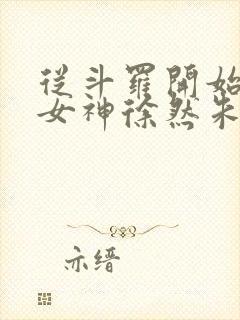 從斗羅開始
女神徐然朱
亦缙